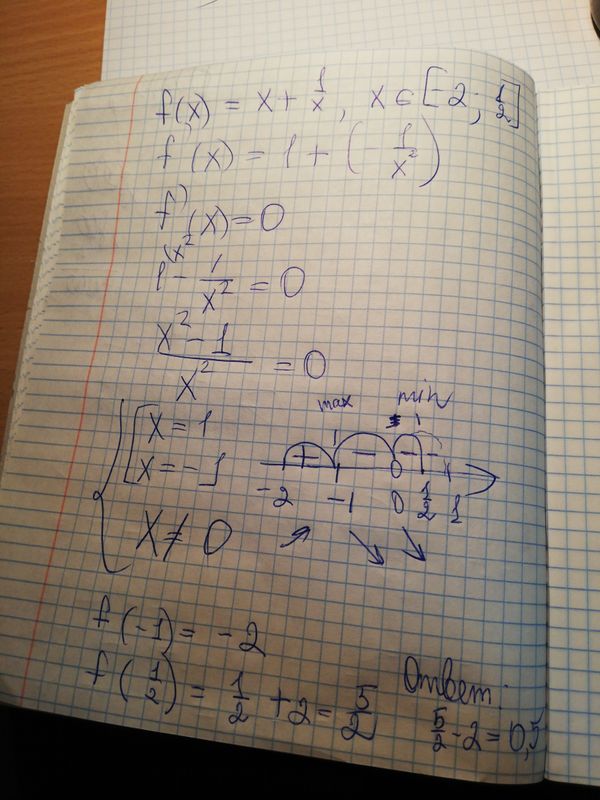 f(x) = x + 1/x, x ∈ [-2; 1/2]
f'(x) = 1 + (-1/x²)
f'(x) = 0
1 (x² - 1/x² = 0
(x² - 1)/x² = 0
x = 1
x = -1
x ≠ 0
max min
+ - - -
0
-2 -1 0 1/2 1
f(-1) = -2
f(1/2) = 1/2 + 2 = 5/2
Ответ:
5/2 - 2 = 0,5